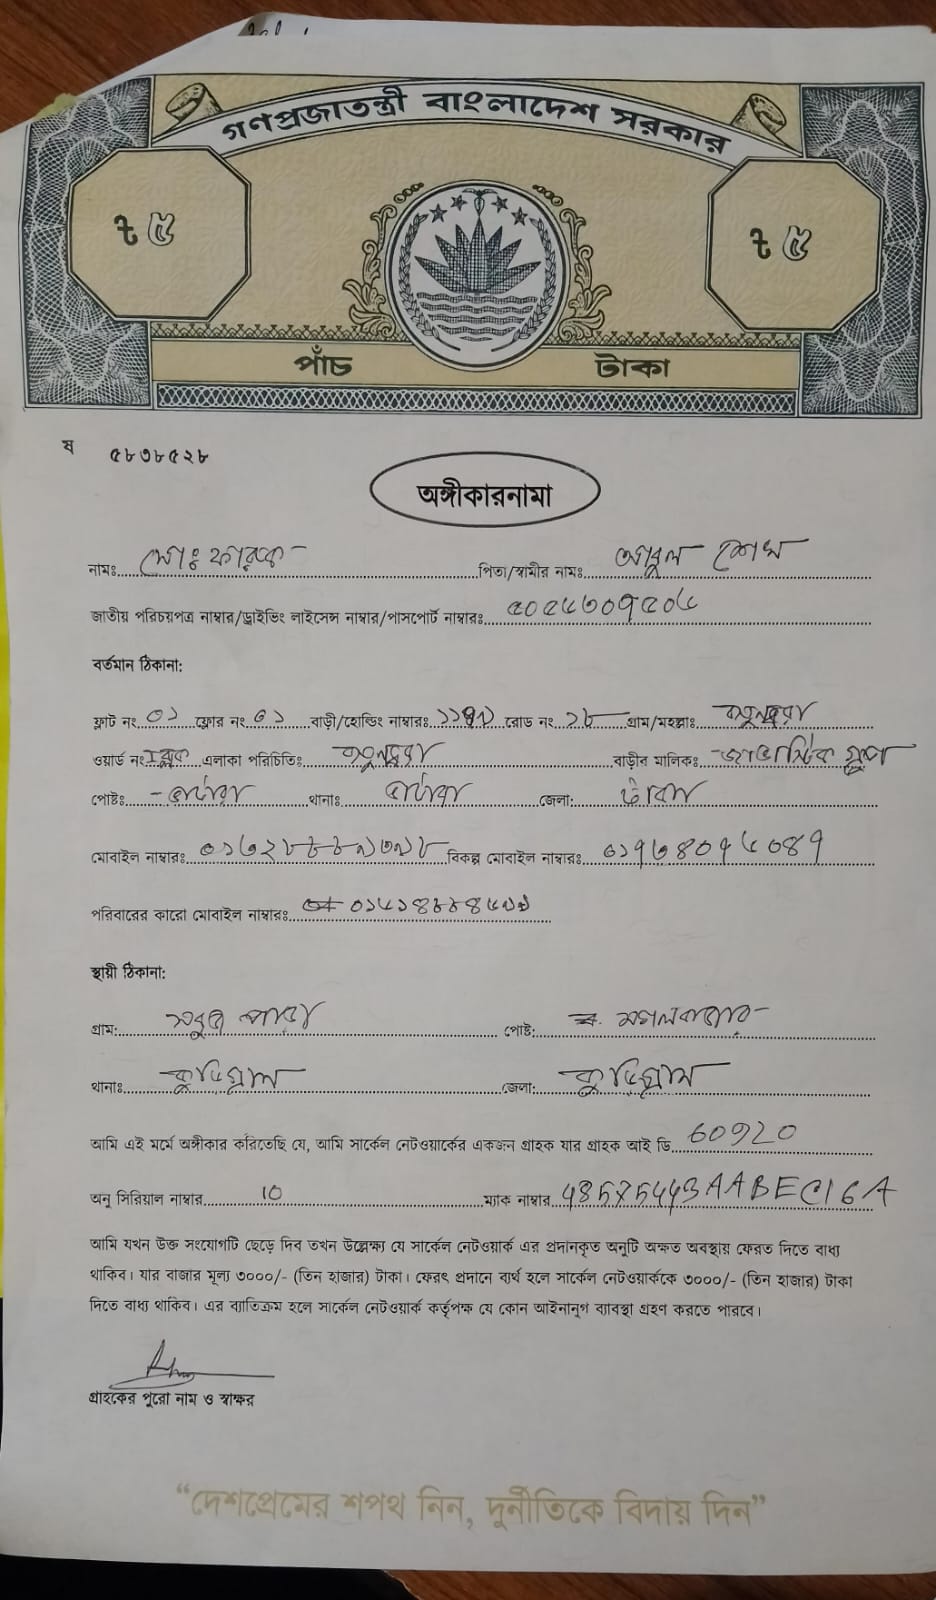 গণপ্রজাতন্ত্রী বাংলাদেশ সরকার
৳ ৫
৳ ৫
পাঁচ টাকা
ষ ৫৮৩৮৫২৮
অঙ্গীকারনামা
নামঃ মোঃ ফারুক পিতা/স্বামীর নামঃ আবুল শেখ
জাতীয় পরিচয়পত্র নাম্বার/ড্রাইভিং লাইসেন্স নাম্বার/পাসপোর্ট নাম্বারঃ
বর্তমান ঠিকানা:
ফ্লাট নং ০১ ফ্লোর নং ০১ বাড়ী/হোল্ডিং নাম্বারঃ রোড নং ১৮ গ্রাম/মহল্লাঃ
ওয়ার্ড নং এলাকা পরিচিতিঃ বাড়ীর মালিকঃ
পোষ্টঃ থানাঃ জেলা: ঢাকা
মোবাইল নাম্বারঃ বিকল্প মোবাইল নাম্বারঃ
পরিবারের কারো মোবাইল নাম্বারঃ
স্থায়ী ঠিকানা:
গ্রাম: সবুজ পাড়া পোষ্ট:
থানাঃ কুড়িগ্রাম জেলা: কুড়িগ্রাম
আমি এই মর্মে অঙ্গীকার করিতেছি যে, আমি সার্কেল নেটওয়ার্কের একজন গ্রাহক যার গ্রাহক আই ডি 60920
অনু সিরিয়াল নাম্বার 10 ম্যাক নাম্বার 48575443AABEC16A
আমি যখন উক্ত সংযোগটি ছেড়ে দিব তখন উল্লেক্ষ্য যে সার্কেল নেটওয়ার্ক এর প্রদানকৃত অনুটি অক্ষত অবস্থায় ফেরত দিতে বাধ্য
থাকিব। যার বাজার মূল্য ৩০০০/- (তিন হাজার) টাকা। ফেরৎ প্রদানে ব্যর্থ হলে সার্কেল নেটওয়ার্ককে ৩০০০/- (তিন হাজার) টাকা
দিতে বাধ্য থাকিব। এর ব্যাতিক্রম হলে সার্কেল নেটওয়ার্ক কর্তৃপক্ষ যে কোন আইনানুগ ব্যাবস্থা গ্রহণ করতে পারবে।
গ্রাহকের পুরো নাম ও স্বাক্ষর
“দেশপ্রেমের শপথ নিন, দুর্নীতিকে বিদায় দিন”